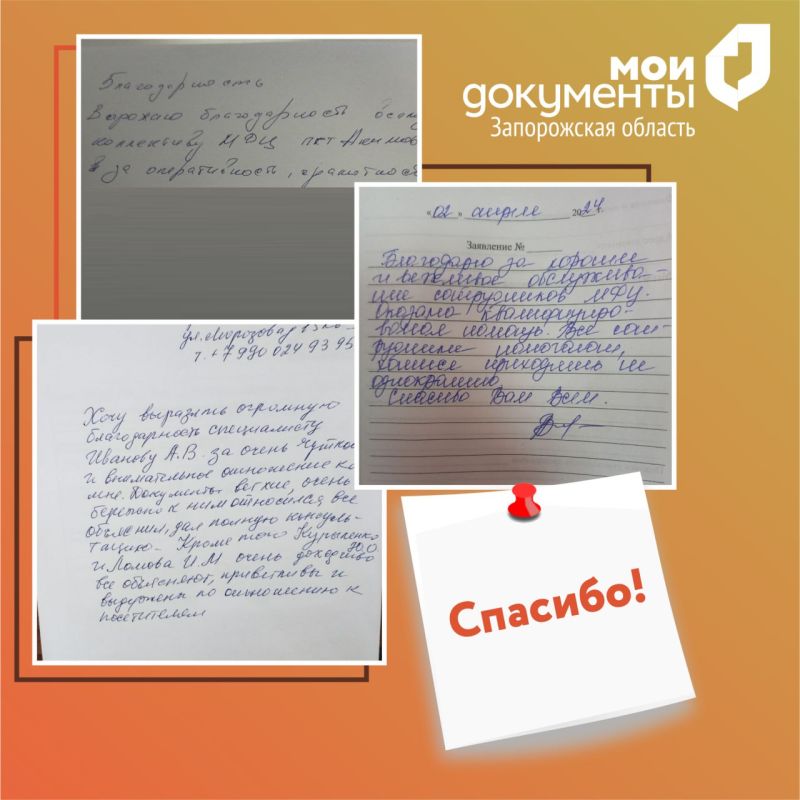 мои
документы
Запорожская область
Благодарность
Выражаю благодарность всему
коллективу МФЦ пгт Аким
за оперативность, грамотнос
«02» апреля 2024г.
Заявление №
Благодарю за хорошее
и вежливое обслужива-
ние сотрудников МФЦ.
Оказана квалифициро-
ванная помощь. Все сот-
рудники помогали,
хотя приходилось не
однократно.
Спасибо Вам Всем.
ул. Морозова
т. +7 990 024 93 95
Хочу выразить огромную
благодарность специалисту
Иванову А.В. за очень чуткое
и внимательное отношение ко
мне. Документы ветхие, очень
бережно к ним относился все
объяснил, дал полную консуль-
тацию. Кроме того Курыленко
Ю.О
и Ломова И.М очень доходчиво
все объясняют, приветливы и
выдержаны по отношению к
посетителям
Спасибо!